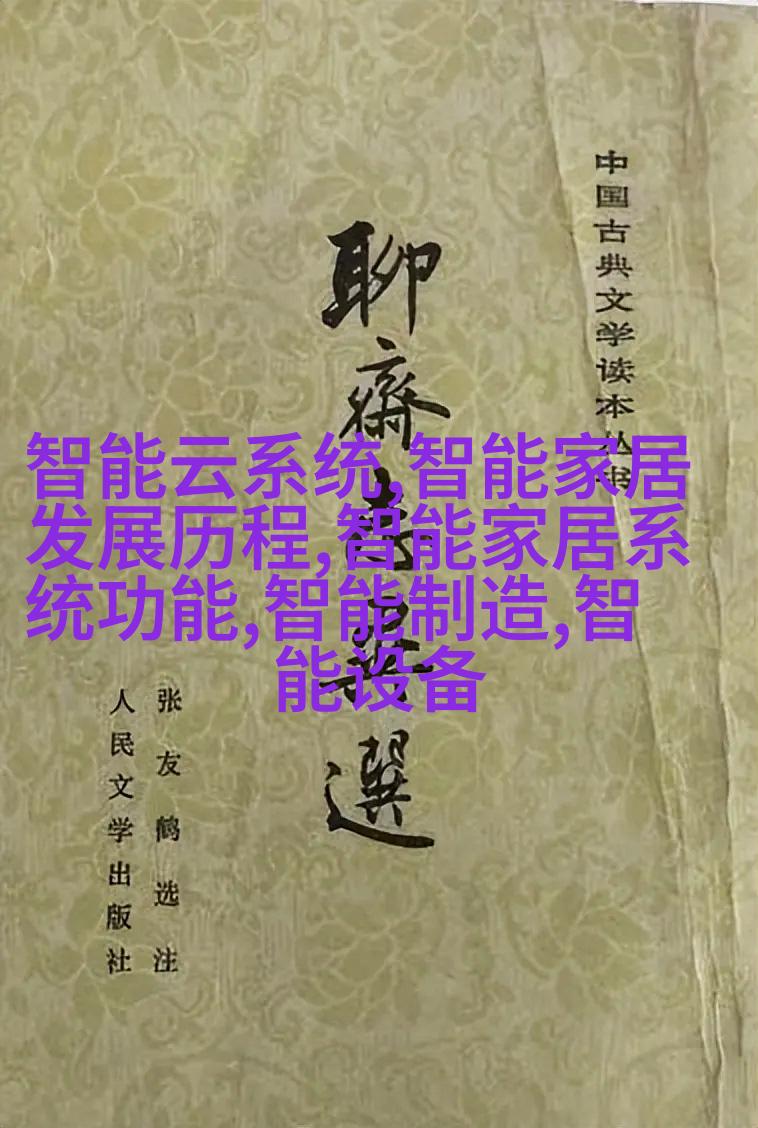 中国古典文学读本丛书
聊齋志異選
智能云系统,智能家居
发展历程,智能家居系
统功能,智能制造,智
能设备
张友鹤选注
人民文学出版社